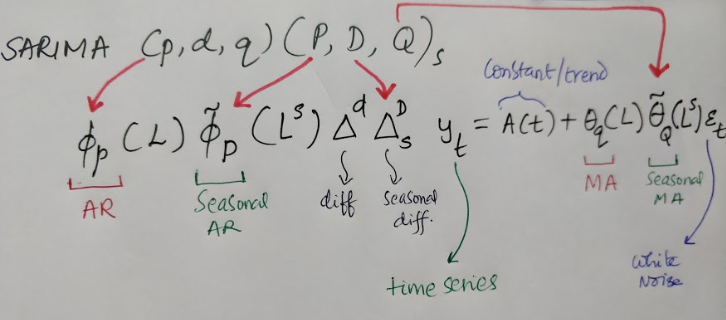 SARIMA (p, d, q) (P, D, Q)s
constant/trend
ϕp (L) ϕ̃P (Lˢ) Δᵈ Δsᴰ yt = A(t) + θq(L) θ̃Q(Lˢ) εt
AR
Seasonal
AR
diff
seasonal
diff.
MA
Seasonal
MA
time series
white
Noise